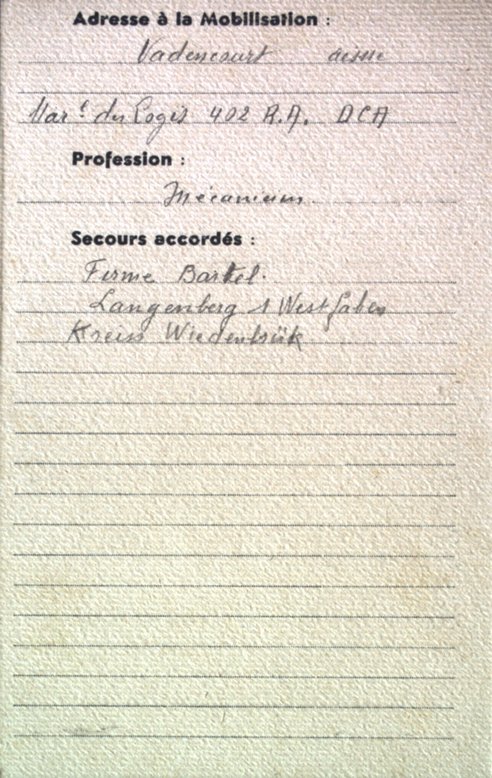 Adresse à la Mobilisation :
Vadencourt aisne
Mar.<sup>l</sup> du Logis 402 R.A. DCA
Profession :
Mécanicien
Secours accordés :
Ferme Bartel.
Langenberg 1 Westfalen
Kreiss Wiedenbrük